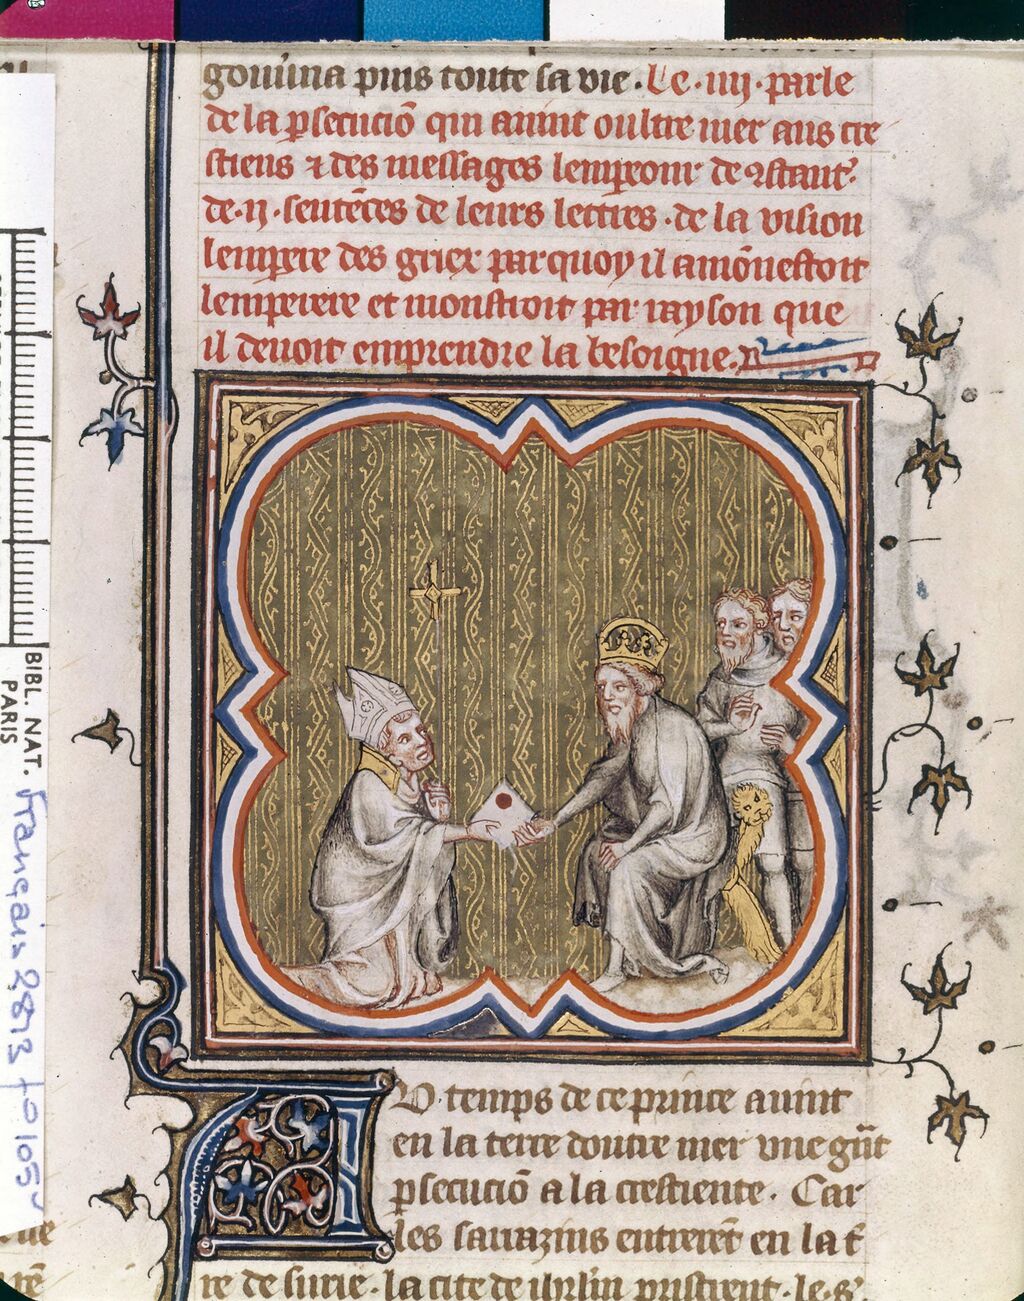 gouuina puis toute sa vie. Le .iiij. parle
de la p̲secuciō qui auint oultre mer aus cre
stiens ⁊ des messages lempeour de ꝯstant̾.
de .ij. sentēces de leurs lettres. de la vision
lempere des griex par quoy il amōnestoit
lemperere et monstroit par rayson que
il deuoit emprendre la besoigne.
AV temps de ce prince auint
en la terre doutre mer vne gr̄nt
p̲secuciō a la crestiente. Car
les sarrazins entrerēt en la t̄
re de surie. la cite de ihrl̄m pristrent. le s̾.
BIBL. NAT.
PARIS
Français 2813 fo 105v